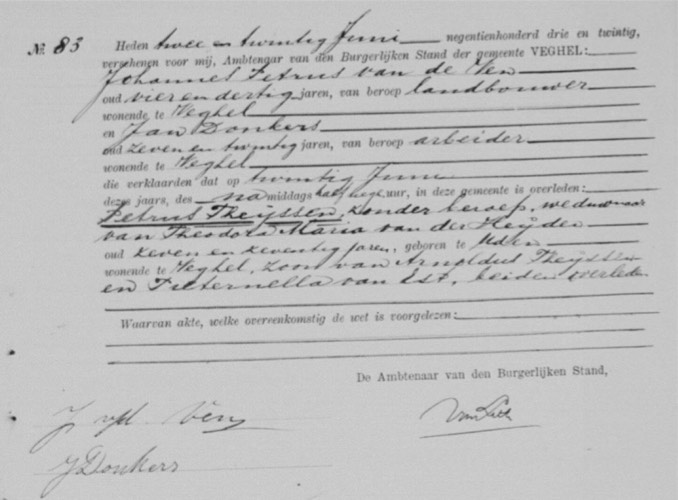 No. 83
Heden twee en twintig Juni negentienhonderd drie en twintig,
verschenen voor mij, Ambtenaar van den Burgerlijken Stand der gemeente VEGHEL:
Johannes Petrus van de Ven
oud vier en dertig jaren, van beroep landbouwer
wonende te Veghel
en Jan Donkers
oud zeven en twintig jaren, van beroep arbeider
wonende te Veghel
die verklaarden dat op twintig Juni
dezes jaars, des namiddags half negen uur, in deze gemeente is overleden:
Petrus Theijssen, zonder beroep, weduwnaar
van Theodora Maria van der Heijden
oud zeven en zeventig jaren, geboren te Uden
wonende te Veghel, zoon van Arnoldus Theijssen
en Pieternella van Est, beiden overleden
Waarvan akte, welke overeenkomstig de wet is voorgelezen:
De Ambtenaar van den Burgerlijken Stand,
J vd Ven
J Donkers